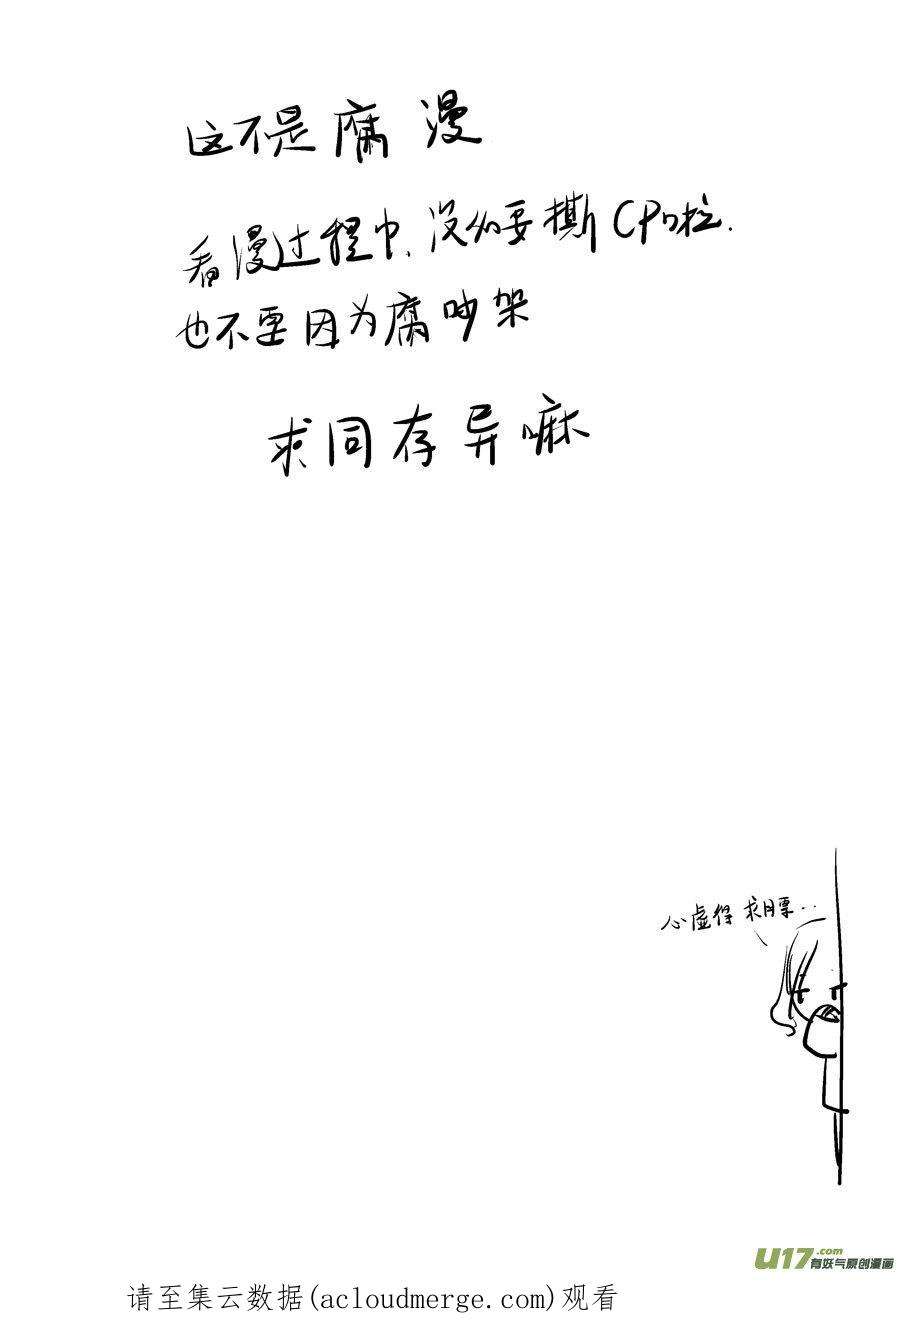 这不是腐漫
看漫过程中、没必要撕CP啦.
也不要因为腐吵架
求同存异嘛
心虚得求月票...
U17.com
有妖气原创漫画
请至集云数据(acloudmerge.com)观看